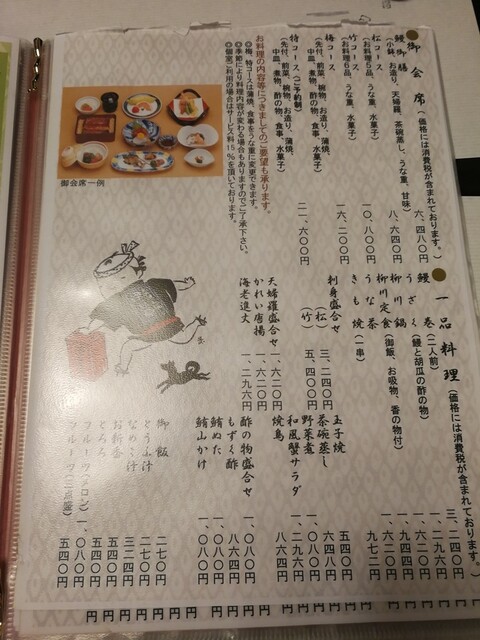 御会席(価格には消費税が含まれております。)
鰻御膳 六、四八〇円
(小鉢、お造り、天婦羅、茶碗蒸し、うな重、甘味)
松コース 八、六四〇円
(お料理5品、うな重、水菓子)
竹コース 一〇、八〇〇円
(お料理6品、うな重、水菓子)
梅コース 一六、二〇〇円
(先付、前菜、椀物、お造り、蒲焼、
中皿、煮物、酢の物、食事、水菓子)
特コース(ご予約制) 二一、六〇〇円
(先付、前菜、椀物、お造り、蒲焼、
中皿、煮物、酢の物、食事、水菓子)
お料理の内容等につきましてのご要望も承ります。
◎梅、特コースは蒲焼、食事をうな重に変更できます。
◎季節により料理内容が変わる場合もありますのでご了承下さい。
◎個室ご利用の場合はサービス料15%を頂いております。
御会席一例
一品料理(価格には消費税が含まれております。)
鰻巻(二人前) 三、二四〇円
うざく(鰻と胡瓜の酢の物) 二、一六〇円
柳川鍋 一、六二〇円
柳川定食(御飯、お吸物、香の物付) 一、九四四円
うな茶 一、六二〇円
きも焼(一串) 九七二円
刺身盛合せ
(松) 三、二四〇円
(竹) 五、四〇〇円
天婦羅盛合せ 一、六二〇円
かれい唐揚 一、六二〇円
海老進丈 一、二九六円
玉子焼 五四〇円
茶碗蒸し 六四八円
野菜煮 一、〇八〇円
和風蟹サラダ 一、二九六円
焼鳥 八六四円
酢の物盛合せ 一、〇八〇円
もずく酢 八六四円
鮪ぬた 一、〇八〇円
鮪山かけ 一、〇八〇円
御飯 二七〇円
とうふ汁 二七〇円
なめこ汁 三二四円
お新香 五四〇円
とろろ 五四〇円
フルーツ(メロン) 一、〇八〇円
フルーツ(二点盛) 五四〇円
円円円円円円円円 円円円円円円円円円